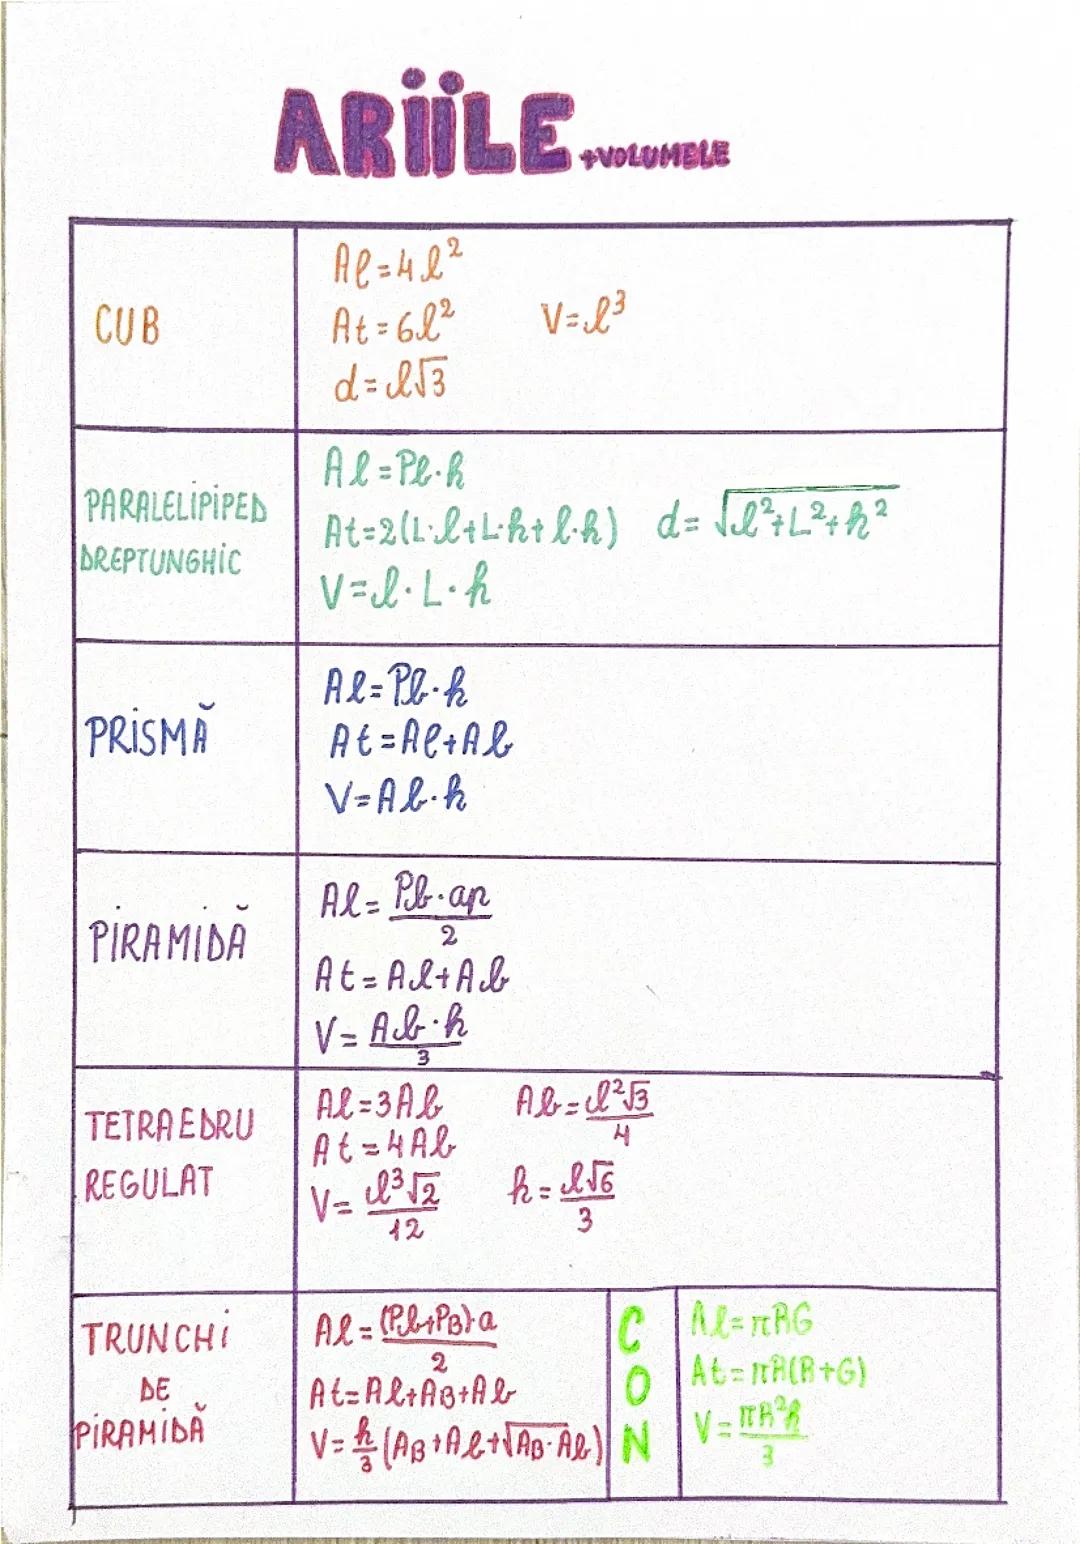 ARIILE +VOLUMELE
CUB
Al=4l²
At=6l² V=l³
d=l√3
PARALELIPIPED
DREPTUNGHIC
Al=Pb·h
At=2(L·l+L·h+l·h) d=√l²+L²+h²
V=l·L·h
PRISMĂ
Al=Pb·h
At=Al+Ab
V=Ab·h
PIRAMIDĂ
Al=Pb·ap/2
At=Al+Ab
V=Ab·h/3
TETRAEDRU
REGULAT
Al=3Ab Ab=l²√3/4
At=4Ab
V=l³√2/12 h=l√6/3
TRUNCHI
DE
PIRAMIDĂ
Al=(Pb+PB)·a/2
At=Al+AB+Ab
V=h/3(AB+Ab+√AB·Ab)
CON
Al=πRG
At=πR(R+G)
V=πR²h/3